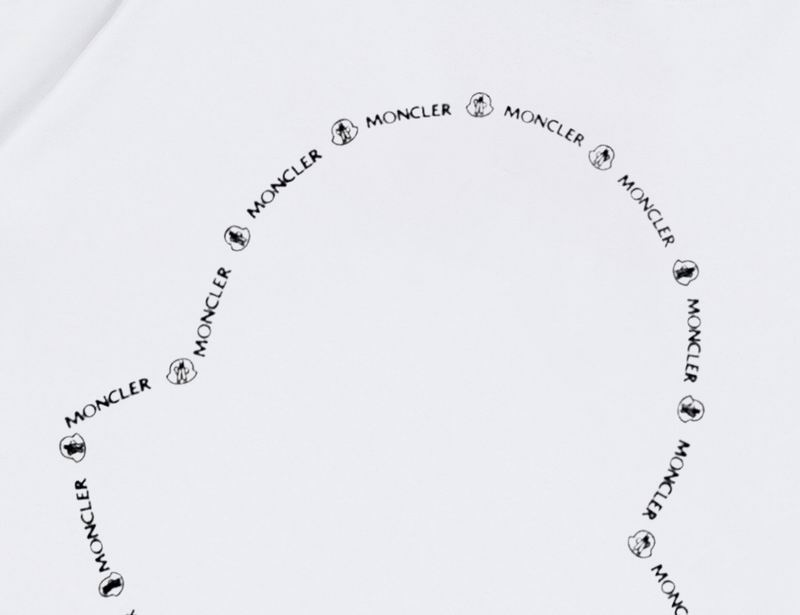 MONCLER
MONCLER
MONCLER
MONCLER
MONCLER
MONCLER
MONCLER
MONCLER
MONCLER
MONC